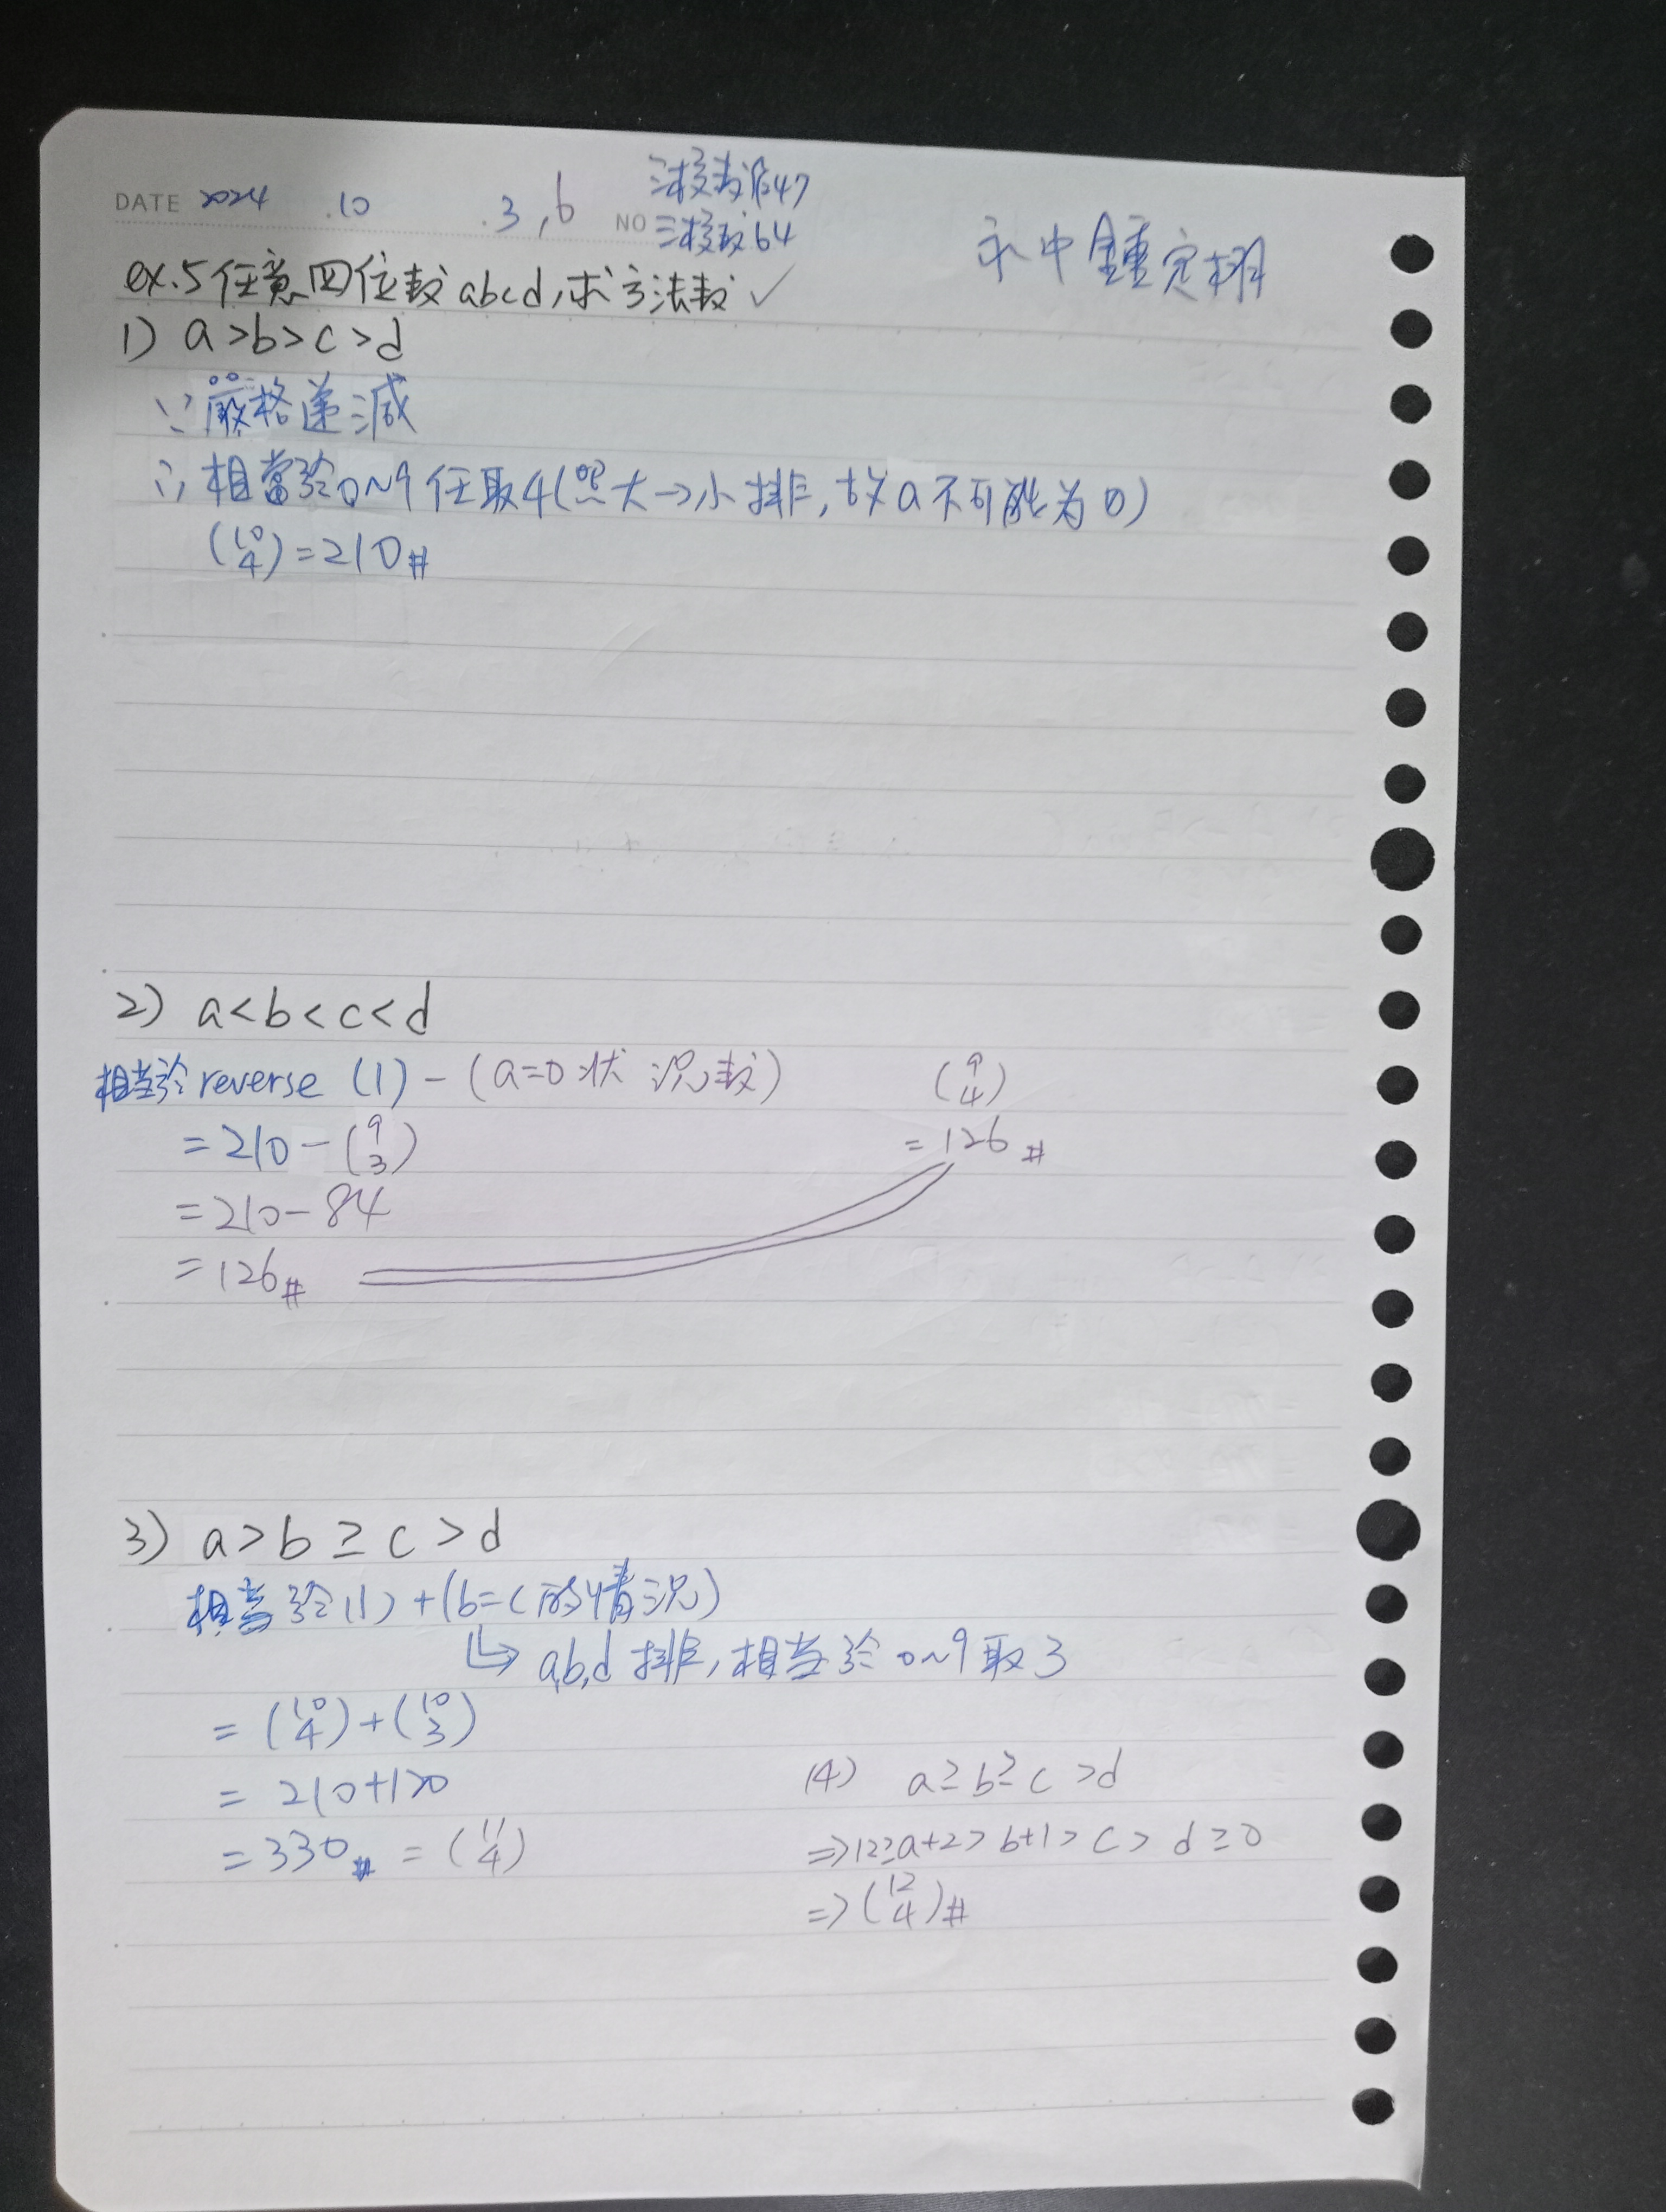 DATE 2024 .10 .3,6 NO
三校教 64
ex.5 任意四位數 abcd,求方法數 ✓
1) a>b>c>d
∵嚴格遞減
∴相當於0~9任取4(照大→小排,故a不可能為0)
(10 4)=210#
2) a<b<c<d
相當於reverse (1)-(a=0狀況數)
=210-(9 3)
=210-84
=126#
(9 4)
=126#
3) a>b≥c>d
相當於(1)+(b=c的情況)
↳ a,b,d 排,相當於0~9取3
=(10 4)+(10 3)
=210+120
=330# =(11 4)
(4) a≥b≥c>d
⇒12≥a+2>b+1>c>d≥0
⇒(12 4)#